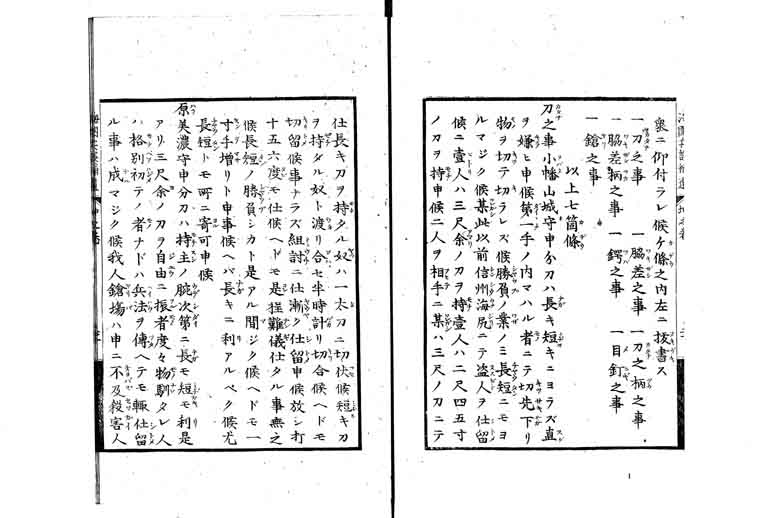 衆ニ仰付ラレ候ケ條之内左ニ拔書ス
一刀之事　一脇差之事　一刀之柄之事
一脇差柄之事　一鍔之事　一目釘之事
一鎗之事
以上七箇條
刀之事小幡山城守申分ハ長キ短キニヨラズ直
ヲ嫌ヒ申候第一手ノ内マハル者ニテ切先下リ
物ヲ切テ切ラレズ候勝負ノ業ノミ長短ニモヨ
ルマジク候某此以前信州海尻ニテ盗人ヲ仕留
候ニ壹人ハ三尺余ノ刀ヲ持壹人ハ二尺四五寸
ノ刀ヲ持申候二人ヲ相手ニ某ハ三尺ノ刀ニテ
仕長キ刀ヲ持タル奴ハ一太刀ニ切伏候短キ刀
ヲ持タル奴ト渡リ合セ半時計リ切合候ヘドモ
切留候事ナラズ組討ニ仕漸ク仕留申候放シ打
十五六度モ仕候ヘドモ是程難儀仕タル事無之
候長短ノ勝負シカト是アル間ジク候ヘドモ一
寸手増リト申事候ヘバ長キニ利アルベク候尤
長短トモ所ニ寄可申候
原美濃守申分刀ハ持主ノ腕次第ニ長モ短モ利是
アリ三尺余ノ刀ヲ自由ニ振者度々物馴タレ人
ハ格別初テノ者ナドハ兵法ヲ傳ヘテモ輙仕留
ル事ハ成マジク候我人鎗塲ハ申ニ不及殺害人